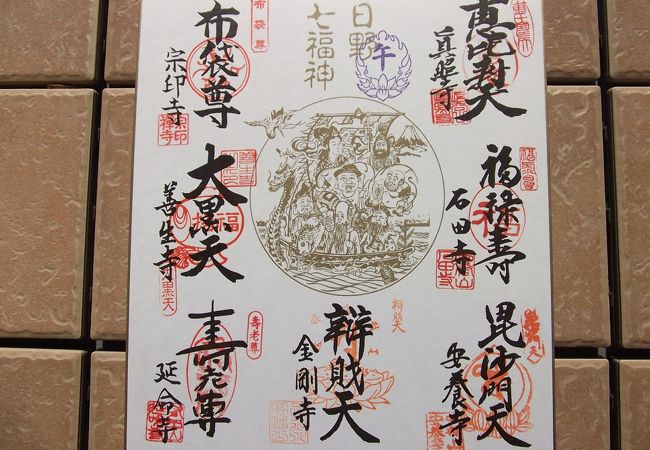 日野
七福神
午
恵比寿天
真照寺
福禄寿
石田寺
毘沙門天
安養寺
辨財天
金剛寺
寿老尊
延命寺
大黒天
善生寺
布袋尊
宗印寺
布袋尊
寿老尊
辨財天